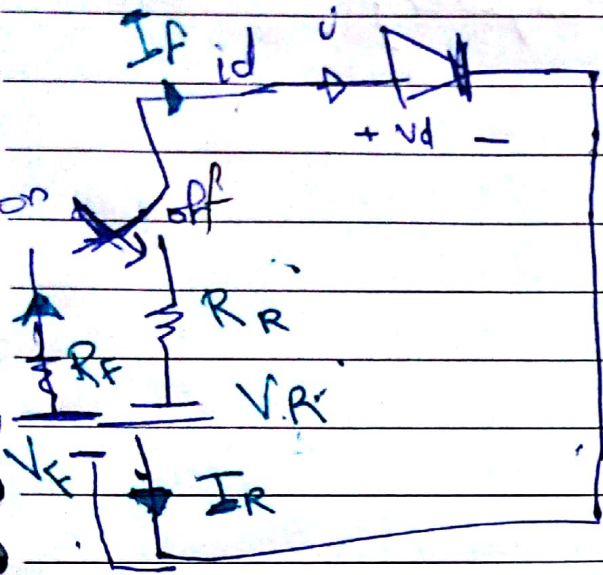 If
id
+ Vd −
on
off
RR
RF
V.R
VF
IR